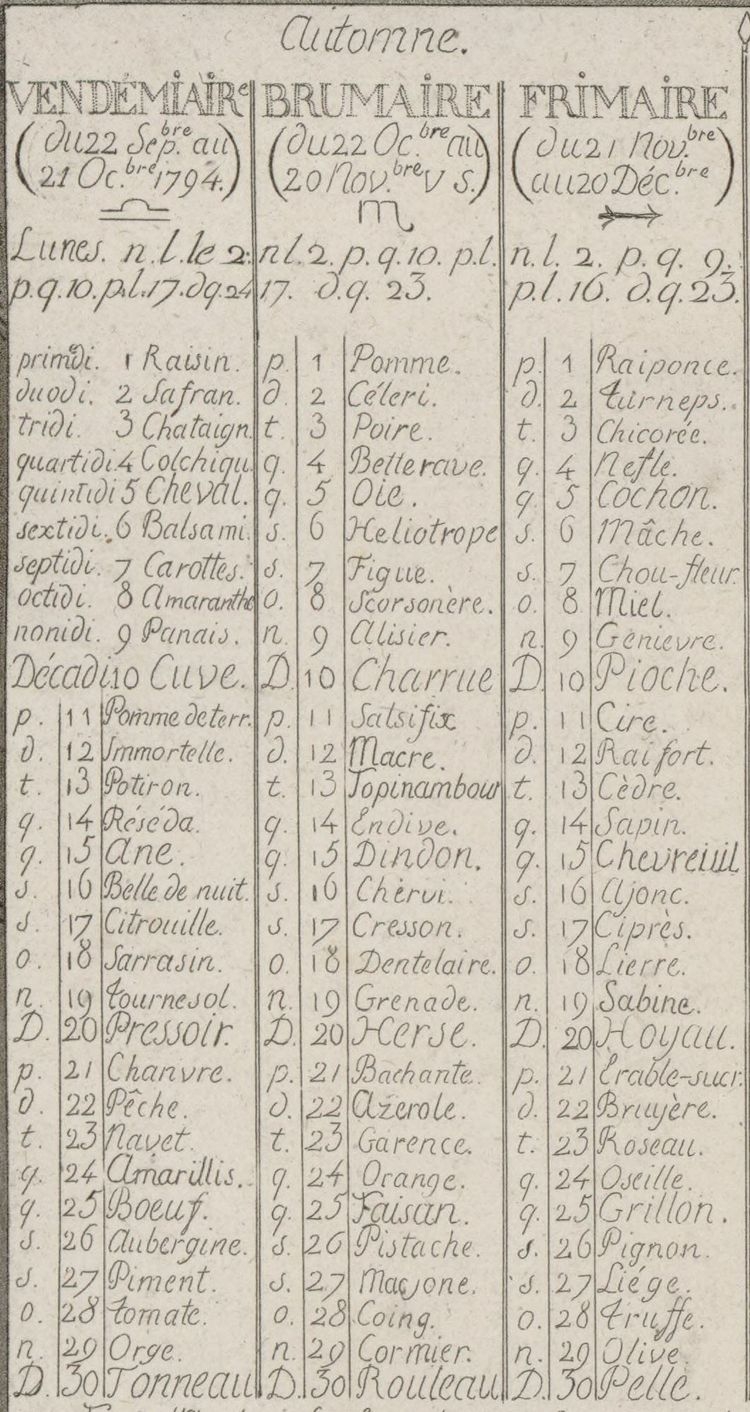 Automne.
VENDÉMIAIRe
(du 22 Sep.bre au
21 Oc.bre 1794.)
Lunes. n. l. le 2.
p. q. 10. p. l. 17. d q. 24
primedi. 1 Raisin.
duodi. 2 Safran.
tridi. 3 Chataign.
quartidi 4 Colchiqu.
quintidi 5 Cheval.
sextidi. 6 Balsami.
septidi. 7 Carottes.
octidi. 8 Amaranthe
nonidi. 9 Panais.
Décadi 10 Cuve.
p. 11 Pomme de terr.
d. 12 Immortelle.
t. 13 Potiron.
q. 14 Réséda.
q. 15 Ane.
s. 16 Belle de nuit.
s. 17 Citrouille.
o. 18 Sarrasin.
n. 19 tournesol.
D. 20 Pressoir.
p. 21 Chanvre.
d. 22 Pêche.
t. 23 Navet.
q. 24 Amarillis.
q. 25 Boeuf.
s. 26 Aubergine.
s. 27 Piment.
o. 28 tomate.
n. 29 Orge.
D. 30 Tonneau
BRUMAIRE
(du 22 Oc.bre au
20 Nov.bre V s.)
n l. 2. p. q. 10. p. l.
17. d. q. 23.
p. 1 Pomme.
d. 2 Céleri.
t. 3 Poire.
q. 4 Betterave.
q. 5 Oie.
s. 6 Heliotrope
s. 7 Figue.
o. 8 Scorsonère.
n. 9 Alisier.
D. 10 Charrue
p. 11 Salsifix
d. 12 Macre.
t. 13 Topinambour
q. 14 Endive.
q. 15 Dindon.
s. 16 Chervi.
s. 17 Cresson.
o. 18 Dentelaire.
n. 19 Grenade.
D. 20 Herse.
p. 21 Bachante.
d. 22 Azerole.
t. 23 Garence.
q. 24 Orange.
q. 25 Faisan.
s. 26 Pistache.
s. 27 Macjone.
o. 28 Coing.
n. 29 Cormier.
D. 30 Rouleau
FRIMAIRE
(du 21 Nov.bre
au 20 Déc.bre)
n. l. 2. p. q. 9.
p. l. 16. d. q. 23.
p. 1 Raiponce.
d. 2 turneps.
t. 3 Chicorée.
q. 4 Nefle.
q. 5 Cochon.
s. 6 Mâche.
s. 7 Chou-fleur.
o. 8 Miel.
n. 9 Genievre.
D. 10 Pioche.
p. 11 Cire.
d. 12 Raifort.
t. 13 Cèdre.
q. 14 Sapin.
q. 15 Chevreuil
s. 16 Ajonc.
s. 17 Ciprès.
o. 18 Lierre.
n. 19 Sabine.
D. 20 Hoyau.
p. 21 Erable-sucr.
d. 22 Bruyère.
t. 23 Roseau.
q. 24 Oseille.
q. 25 Grillon.
s. 26 Pignon.
s. 27 Liége.
o. 28 truffe.
n. 29 Olive.
D. 30 Pelle.